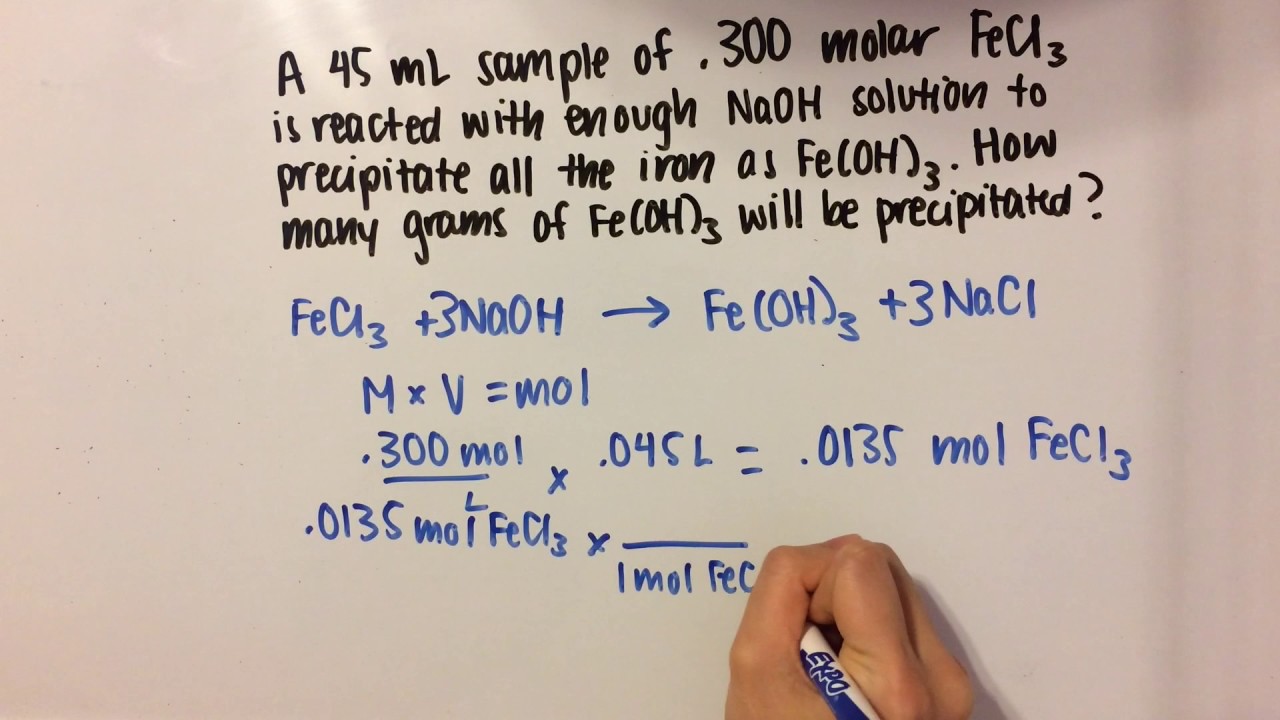 A 45 mL sample of .300 molar FeCl₃
is reacted with enough NaOH solution to
precipitate all the iron as Fe(OH)₃. How
many grams of Fe(OH)₃ will be precipitated?
FeCl₃ +3NaOH → Fe(OH)₃ +3NaCl
M × V = mol
.300 mol / L × .045 L = .0135 mol FeCl₃
.0135 mol FeCl₃ ×
1 mol FeC
EXPO